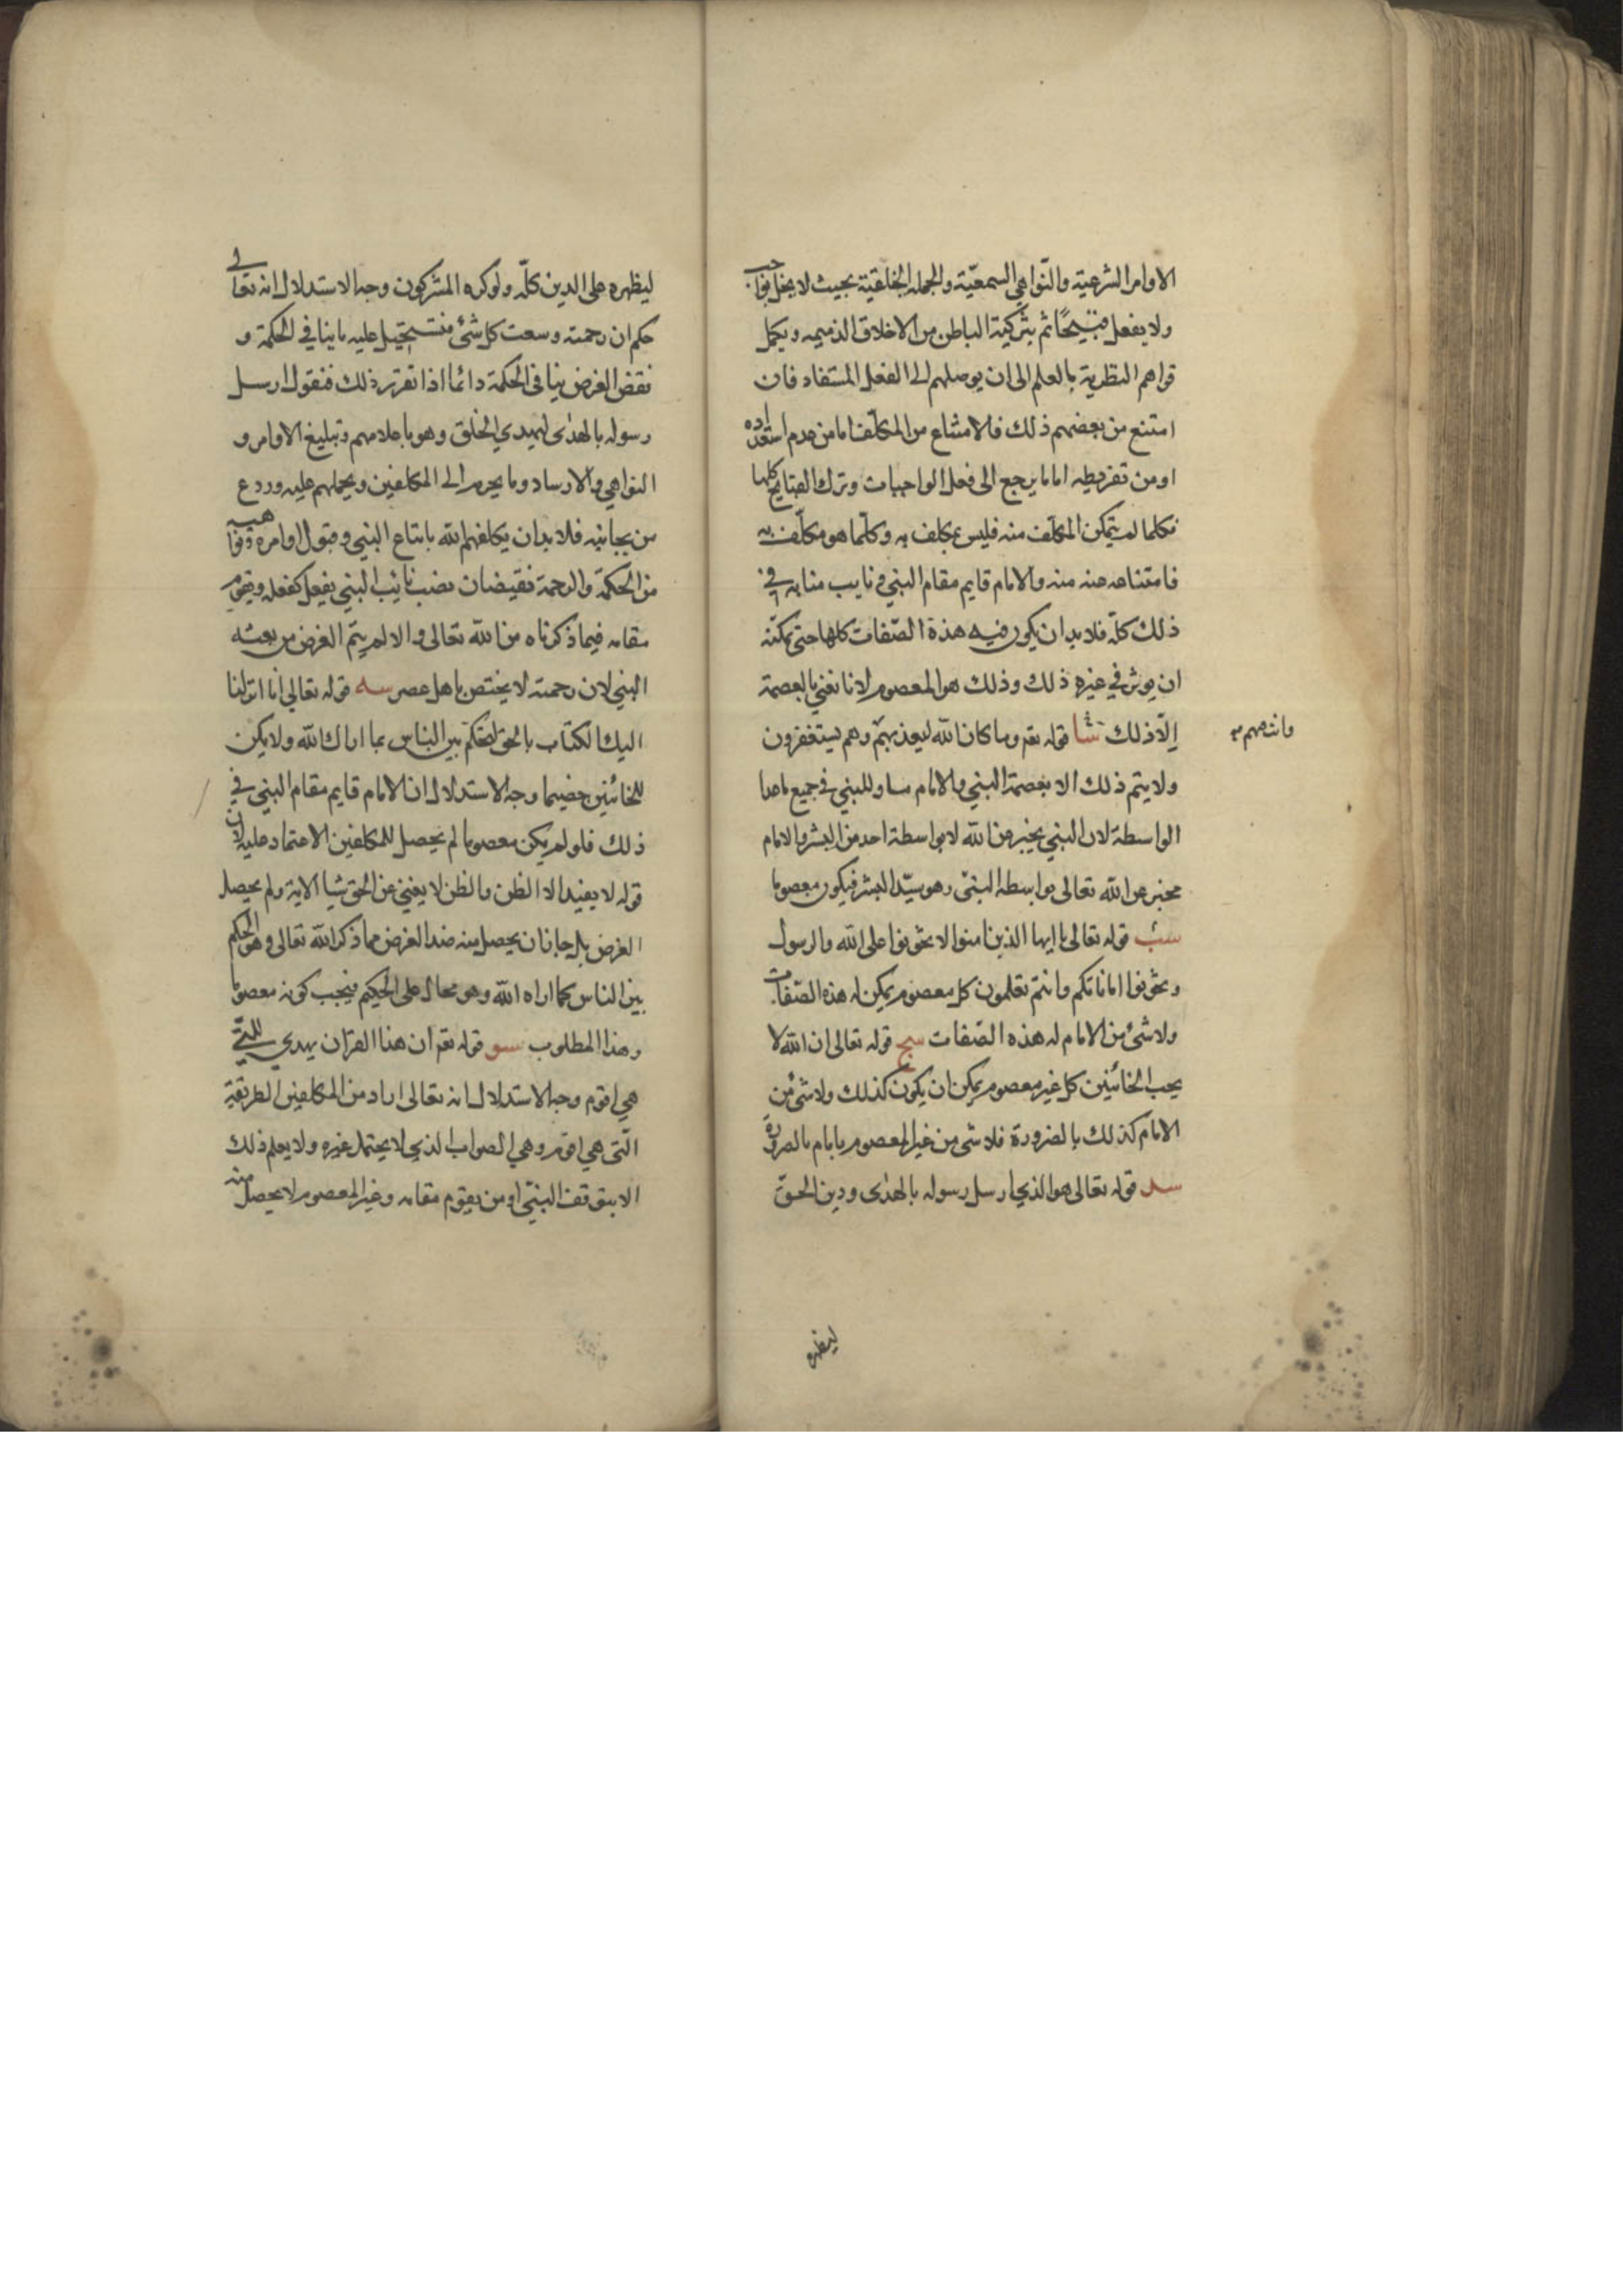 الاوامر الشرعية والنواهي السمعية والجملة الخلقية بحيث لا يخل بواجب
ولا يفعل قبيحا ثم بتزكية الباطن من الاخلاق الذميمه ويكمل
قواهم النظرية بالعلم الى ان يوصلهم الى الفعل المستفاد فان
امتنع من بعضهم ذلك فالامتناع من المكلف اما من عدم استعداده
او من تفريطه اما ما يرجع الى فعل الواجبات وترك القبايح كلها
فكلما لم يتمكن المكلف منه فليس بمكلف به وكلما هو مكلف به
فامتناعه عنه منه والامام قايم مقام النبي و نايب منابه في
ذلك كله فلا بد ان يكون فيه هذه الصفات كلها حتى يمكنه
ان يوثر في غيره ذلك وذلك هو المعصوم لانا نعني بالعصمة
إلا ذلك سا قوله تعم وما كان الله ليعذبهم وهم يستغفرون
وانت فيهم
ولا يتم ذلك الا بعصمة النبي والامام مساو للنبي في جميع ما عدا
الواسطة لان النبي يخبر عن الله لا بواسطة احد من البشر والامام
مخبر عن الله تعالى بواسطة النبي وهو سيد البشر فيكون معصوما
سب قوله تعالى يا ايها الذين امنوا لا تخونوا على الله والرسول
وتخونوا اماناتكم وانتم تعلمون كل معصوم يمكن له هذه الصفات
ولا شئ من الامام له هذه الصفات سج قوله تعالى ان الله لا
يحب الخائنين كل غير معصوم يمكن ان يكون كذلك ولا شئ من
الامام كذلك بالضرورة فلا شى من غير المعصوم بامام بالضرورة
سد قوله تعالى هو الذي ارسل رسوله بالهدى ودين الحق
ليظهره
ليظهره على الدين كله ولو كره المشركون وجه الاستدلال انه تعالى
حكم ان رحمته وسعت كل شئ فتستحيل عليه ما ينافي الحكمة و
نقض الغرض ينافي الحكمة دائما اذا تقرر ذلك فنقول ارسل
رسوله بالهدى ليهدي الخلق وهو باعلامهم وتبليغ الاوامر و
النواهي والارساد وما يحرم الى المكلفين ويحملهم عليه وردع
من يجانبه فلا بد ان يكلفهم الله باتباع النبي وقبول اوامره ونواهيه
من الحكمة والرحمة نقيضان نصب نائب النبي يفعل كفعله ويقوم
مقامه فيما ذكرناه من الله تعالى والا لم يتم الغرض من بعثه
النبي لان رحمته لا يختص باهل عصر سه قوله تعالى انا انزلنا
اليك الكتاب بالحق لتحكم بين الناس بما اراك الله ولا يكن
للخائنين خصيما وجه الاستدلال ان الامام قايم مقام النبي في
ذلك فلو لم يكن معصوما لم يحصل للمكلفين الاعتماد عليه لان
قوله لا يفيد الا الظن والظن لا يغني عن الحق شيا الاية ولم يحصل
الغرض بل جاز ان يحصل منه ضد الغرض مما ذكر الله تعالى وهو الحكم
بين الناس بما اراه الله وهو محال على الحكيم فيجب كونه معصوما
وهذا المطلوب سو قوله تعم ان هذا القرآن يهدي للتي
هي اقوم وجه الاستدلال انه تعالى اراد من المكلفين الطريقة
التى هي اقوم وهي الصواب الذي لا يحتمل غيره ولا يعلم ذلك
الا بتوقف النبي او من يقوم مقامه وغير المعصوم لا يحصل منه